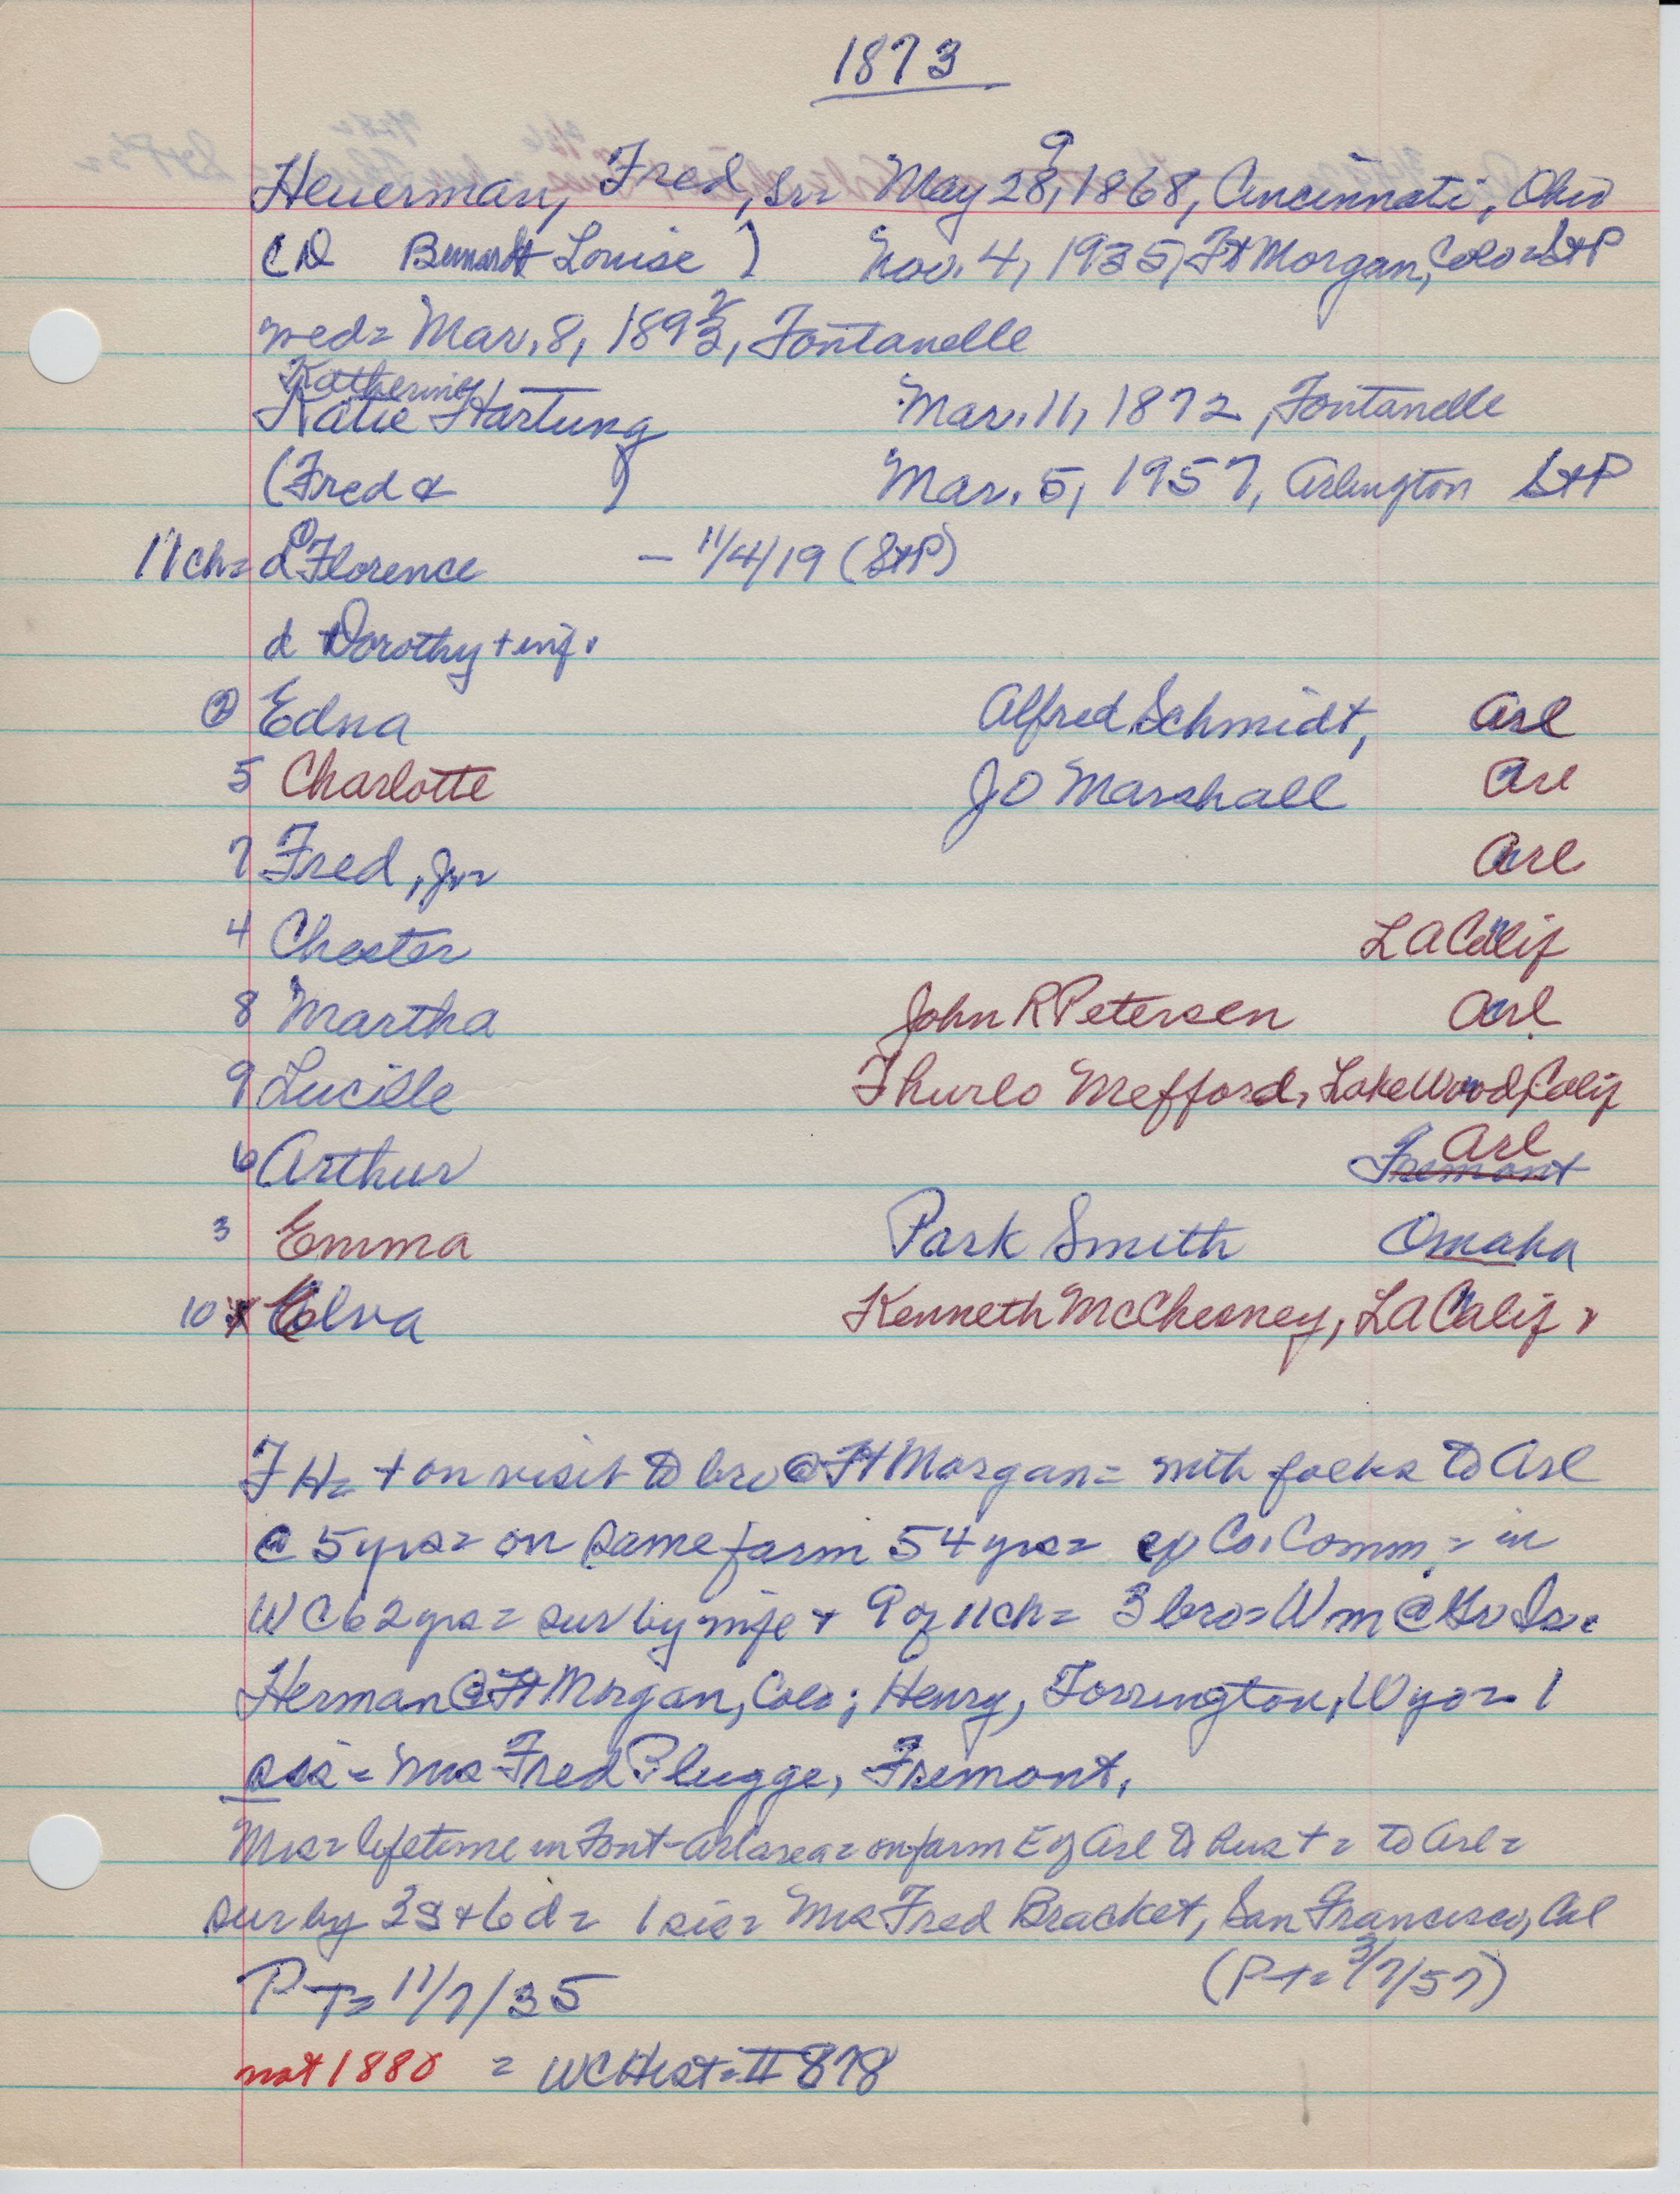 1873
Heuerman, Fred, Sr= May 28, 1868, Cincinnati, Ohio
9
(D Bernardt Louise ) Nov. 4, 1935, Ft Morgan, Colo= StP
wed= Mar. 8, 1893, Fontanelle
2
Katherine
Katie Hartung Mar. 11, 1872, Fontanelle
(Fred & ) Mar. 5, 1957, Arlington StP
11 ch= d Florence — 11/4/19 (StP)
1
d Dorothy + inf.
2 Edna Alfred Schmidt, Arl
5 Charlotte J O Marshall Arl
7 Fred, Jr= Arl
4 Chester L A Calif
8 Martha John R Petersen Arl
9 Lucille Thurlo Mefford, LakeWood, Calif
6 Arthur Fremont Arl
3 Emma Park Smith Omaha
10 Elva Kenneth McChesney, L A Calif
F H= + on visit to bro @ Ft Morgan= with folks to Arl
@ 5 yrs= on same farm 54 yrs= Co. Comm.= in
W C 62 yrs= sur by wife + 9 of 11 ch= 3 bro= Wm @ Gr Is.
Herman @ Ft Morgan, Colo; Henry, Torrington, Wyo= 1
sis= Mrs Fred Plugge, Fremont.
Mrs= lifetime in Font-Arl area= on farm E of Arl to hus += to Arl=
sur by 3 s + 6 d= 1 sis= Mrs Fred Bracket, San Francisco, Cal
P T= 11/7/35 (P T= 3/7/57)
not 1880 = WCHist= II 878